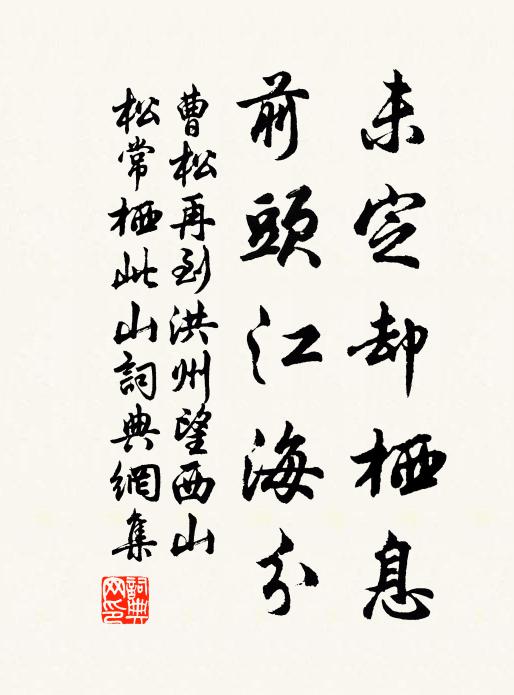 未定却栖息
前頭江海分
曹松再到洪州望西山
松常栖此山詞典網集
詞典
网印